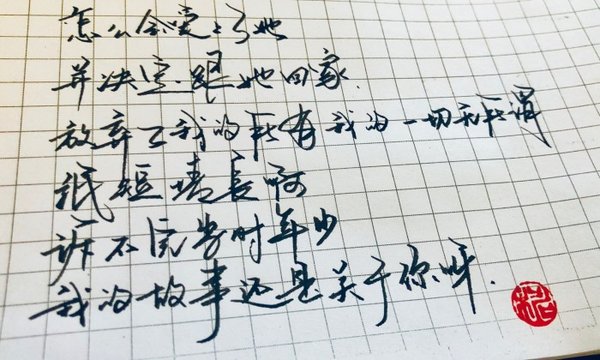 怎么会爱上了她
并决定跟她回家
放弃了我的所有我的一切无所谓
纸短情长啊
诉不完当时年少
我的故事还是关于你呀.